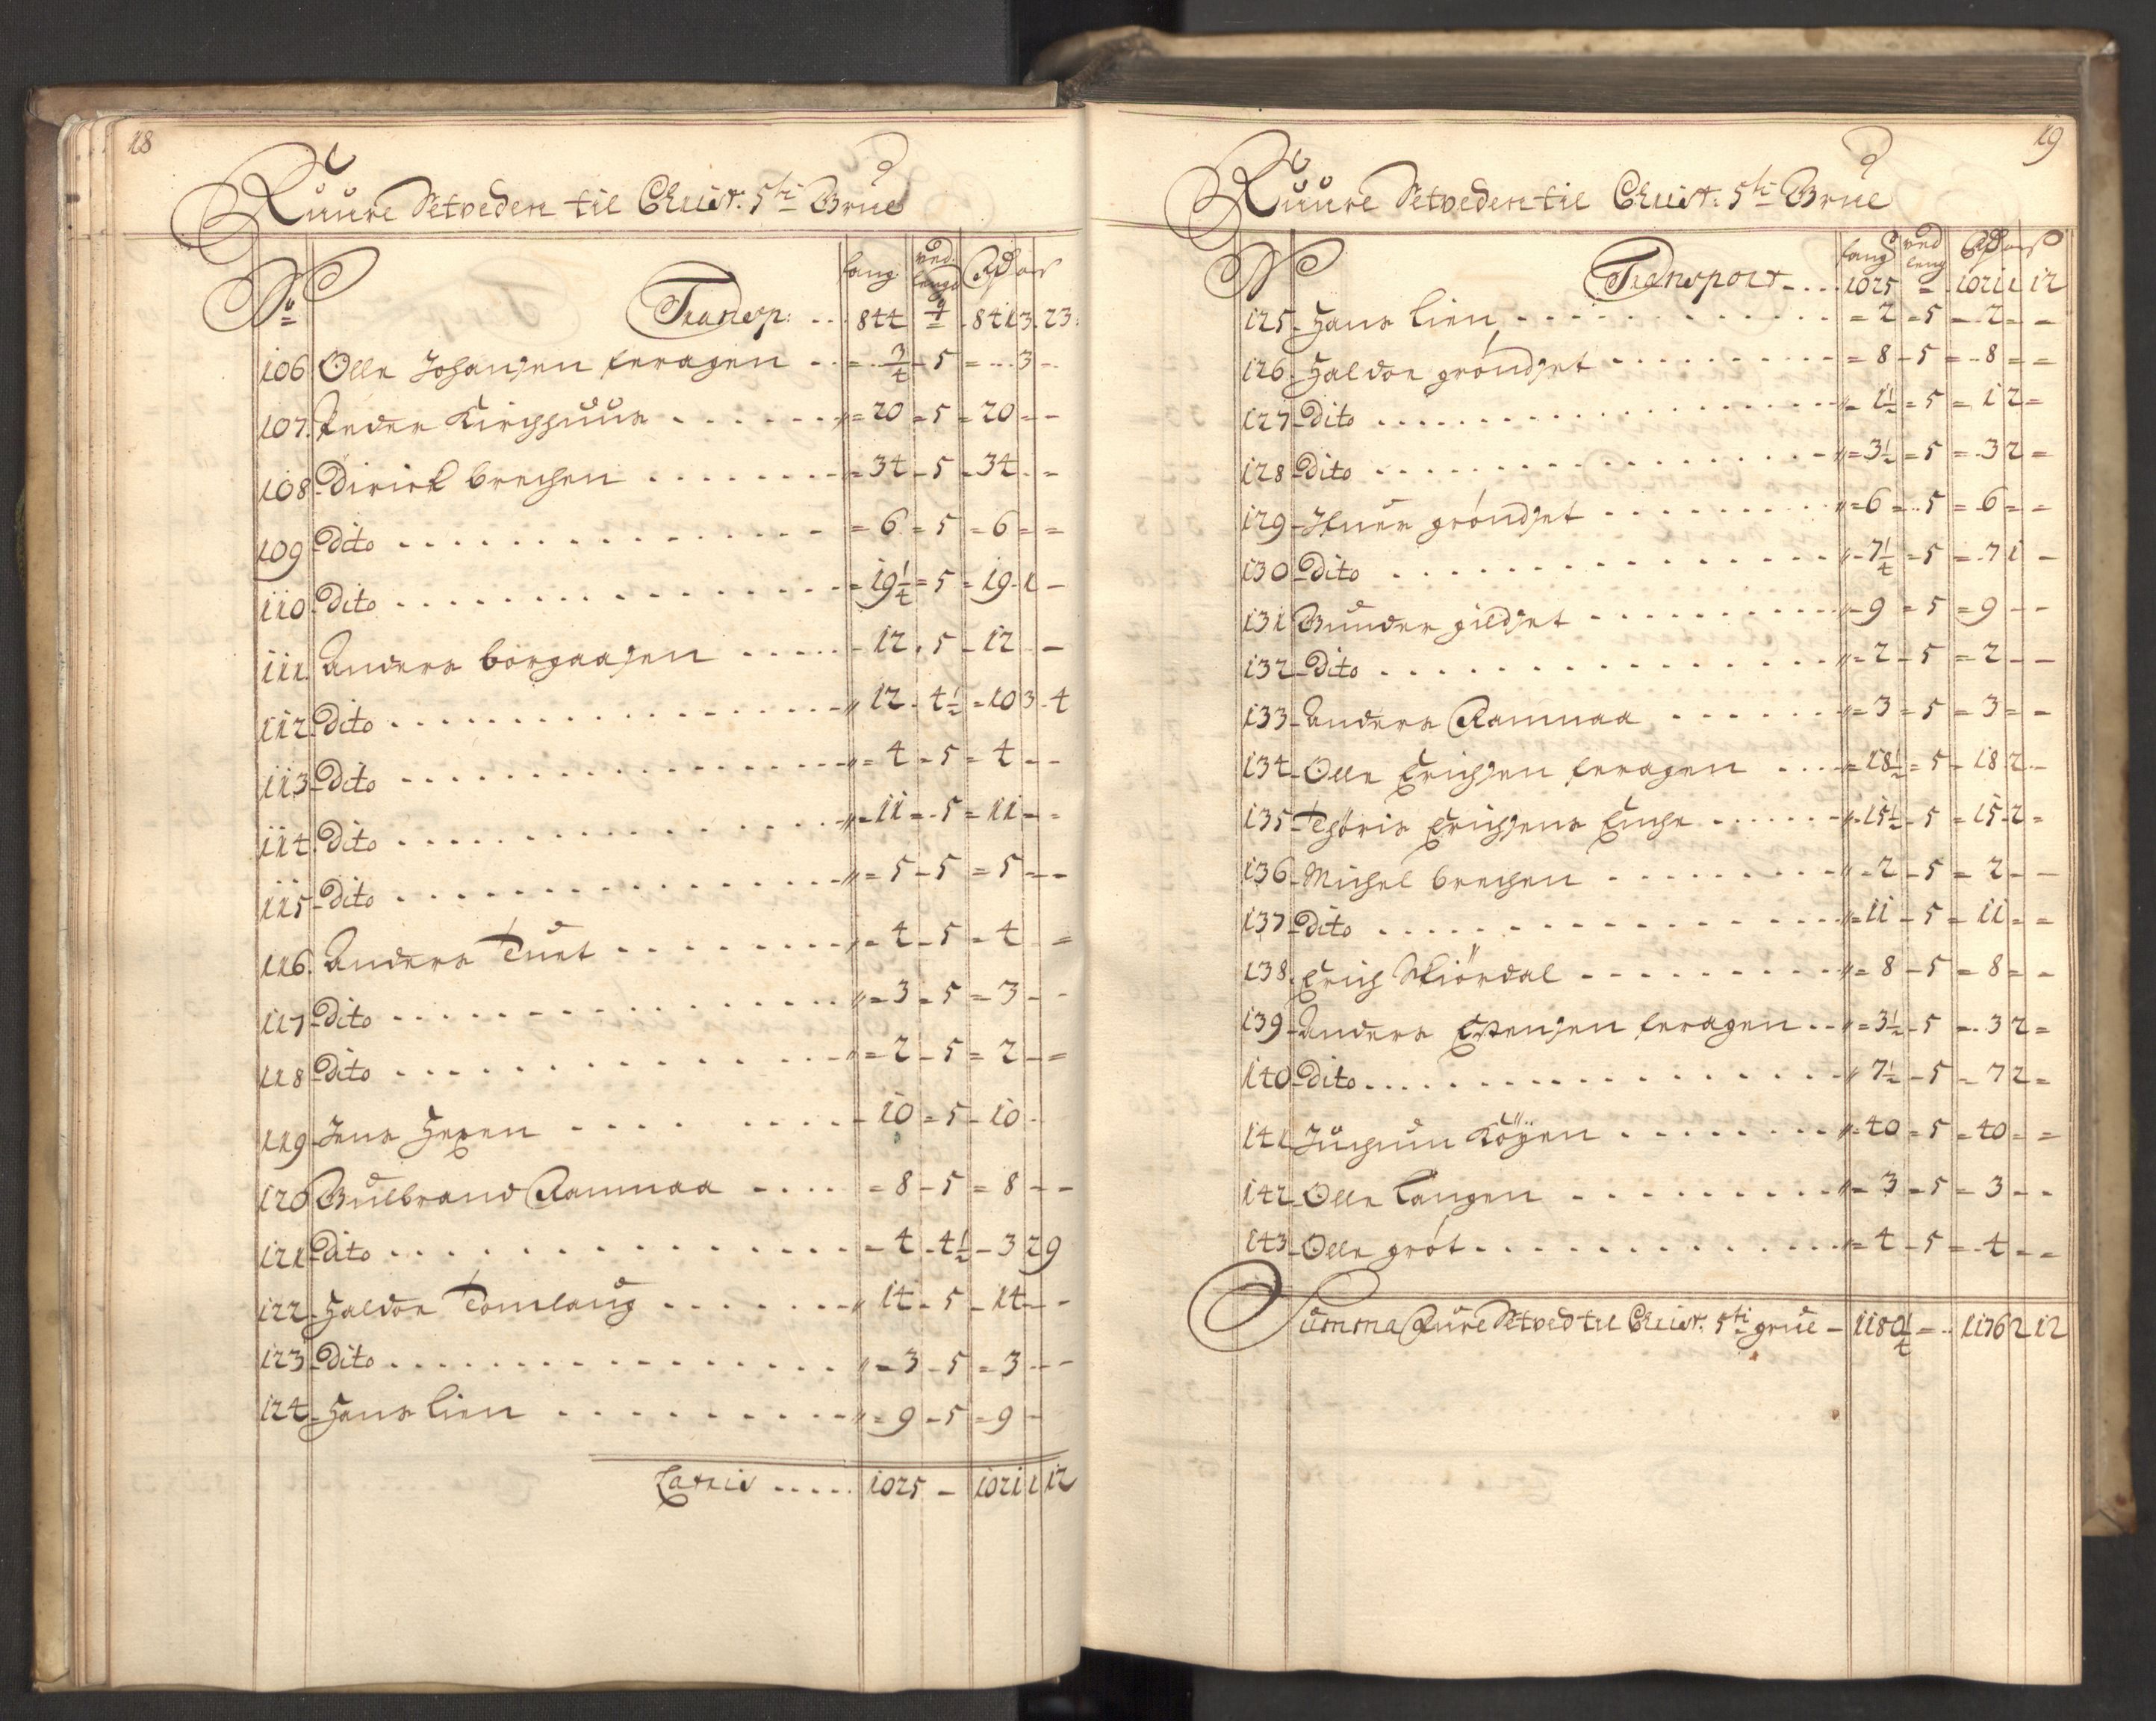 18
Ruure Setveden til Christ: 5ti Grue
No fang ved lengd Rd ort
Transp: . . 844 - 841 3 23
106 Olle Johansen feragen . . = 3/4 - 5 = . . . 3 -
107. Peder Kirchhuus . . . . . . = 20 = 5 = 20 = -
108 Dirick brechen . . . . . . . = 34 - 5 - 34 - =
109 Dito . . . . . . . . . . . = 6 = 5 = 6 = =
110 Dito . . . . . . . . . . . = 19 1/4 = 5 = 19 - 1 -
111. Anders borgaasen . . . . . - 12 - 5 - 12 - -
112 Dito . . . . . . . . . . . " 12 - 4 1/2 = 10 3 - 4
113 Dito . . . . . . . . . . . " = 4 - 5 = 4 - -
114 Dito . . . . . . . . . . . " - 11 = 5 = 11 - =
115 Dito . . . . . . . . . . . " = 5 - 5 = 5 - -
116. Anders Tuet . . . . . . . . " = 4 - 5 = 4 - =
117 Dito . . . . . . . . . . . " = 3 - 5 = 3 - -
118 Dito . . . . . . . . . . . " = 2 - 5 = 2 - =
119 Jens Hexen . . . . . . . . - 10 = 5 - 10 -
120 Gulbrand Ramnaa . . . . = 8 - 5 = 8 - -
121 Dito . . . . . . . . . . . - 4 - 4 1/2 - 3 2 9
122 Haldor Tomlaug . . . . . . . " 14 - 5 - 14 - -
123 Dito . . . . . . . . . . . " - 3 - 5 = 3 - -
124 Hans lien . . . . . . . . . " = 9 - 5 = 9 -
Lateris . . . . . 1025 - 1021 1 12
19
Ruure Setveden til Christ: 5ti Grue
No fang ved leng Rd ort
Transport . . . 1025 = 1021 1 12
125 Hans lien . . . . . . . . . . = 2 = 5 = 2 = -
126. Haldor gröndset . . . . . . . = 8 - 5 = 8 = =
127 Dito . . . . . . . . . . . " = 1 1/2 = 5 = 1 2 =
128 Dito . . . . . . . . . . . " = 3 1/2 = 5 = 3 2 =
129 Ifuer gröndset . . . . . . . " = 6 = 5 = 6 = -
130 Dito . . . . . . . . . . . " - 7 1/4 = 5 = 7 1 -
131 Gunder gildset . . . . . . . " - 9 = 5 = 9 - -
132 Dito . . . . . . . . . . . " = 2 - 5 = 2 - -
133 Anders Ramnaa . . . . . . " = 3 = 5 = 3 = -
134 Olle Erichsen feragen . . . = 18 1/2 = 5 - 18 2 -
135 Thöris Erichsens Enche . . . . . " 15 1/2 - 5 = 15 2 =
136 Michel brechen . . . . . . . " = 2 - 5 = 2 - -
137 Dito . . . . . . . . . . . " = 11 - 5 = 11 = =
138. Erich Skiördal . . . . . . . " = 8 - 5 = 8 = -
139 Anders Estensen feragen . . " = 3 1/2 - 5 = 3 2 =
140 Dito . . . . . . . . . . . " 7 1/2 - 5 = 7 2 =
141 Juchum Köÿen . . . . . . . " = 40 = 5 = 40 = =
142 Olle Langen . . . . . . . . " = 3 - 5 = 3 - -
143 Olle gröt . . . . . . . . . " = 4 - 5 = 4 - =
Summa Ruure Setved til Christ: 5ti grue - 1180 1/4 = 1176 2 12